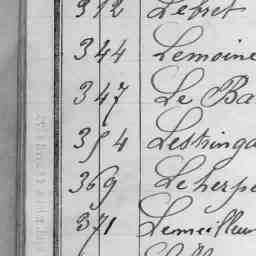 312 Lebret
344 Lemoine
347 Le Ba
354
369 Leherpe
371 Lemeilleur